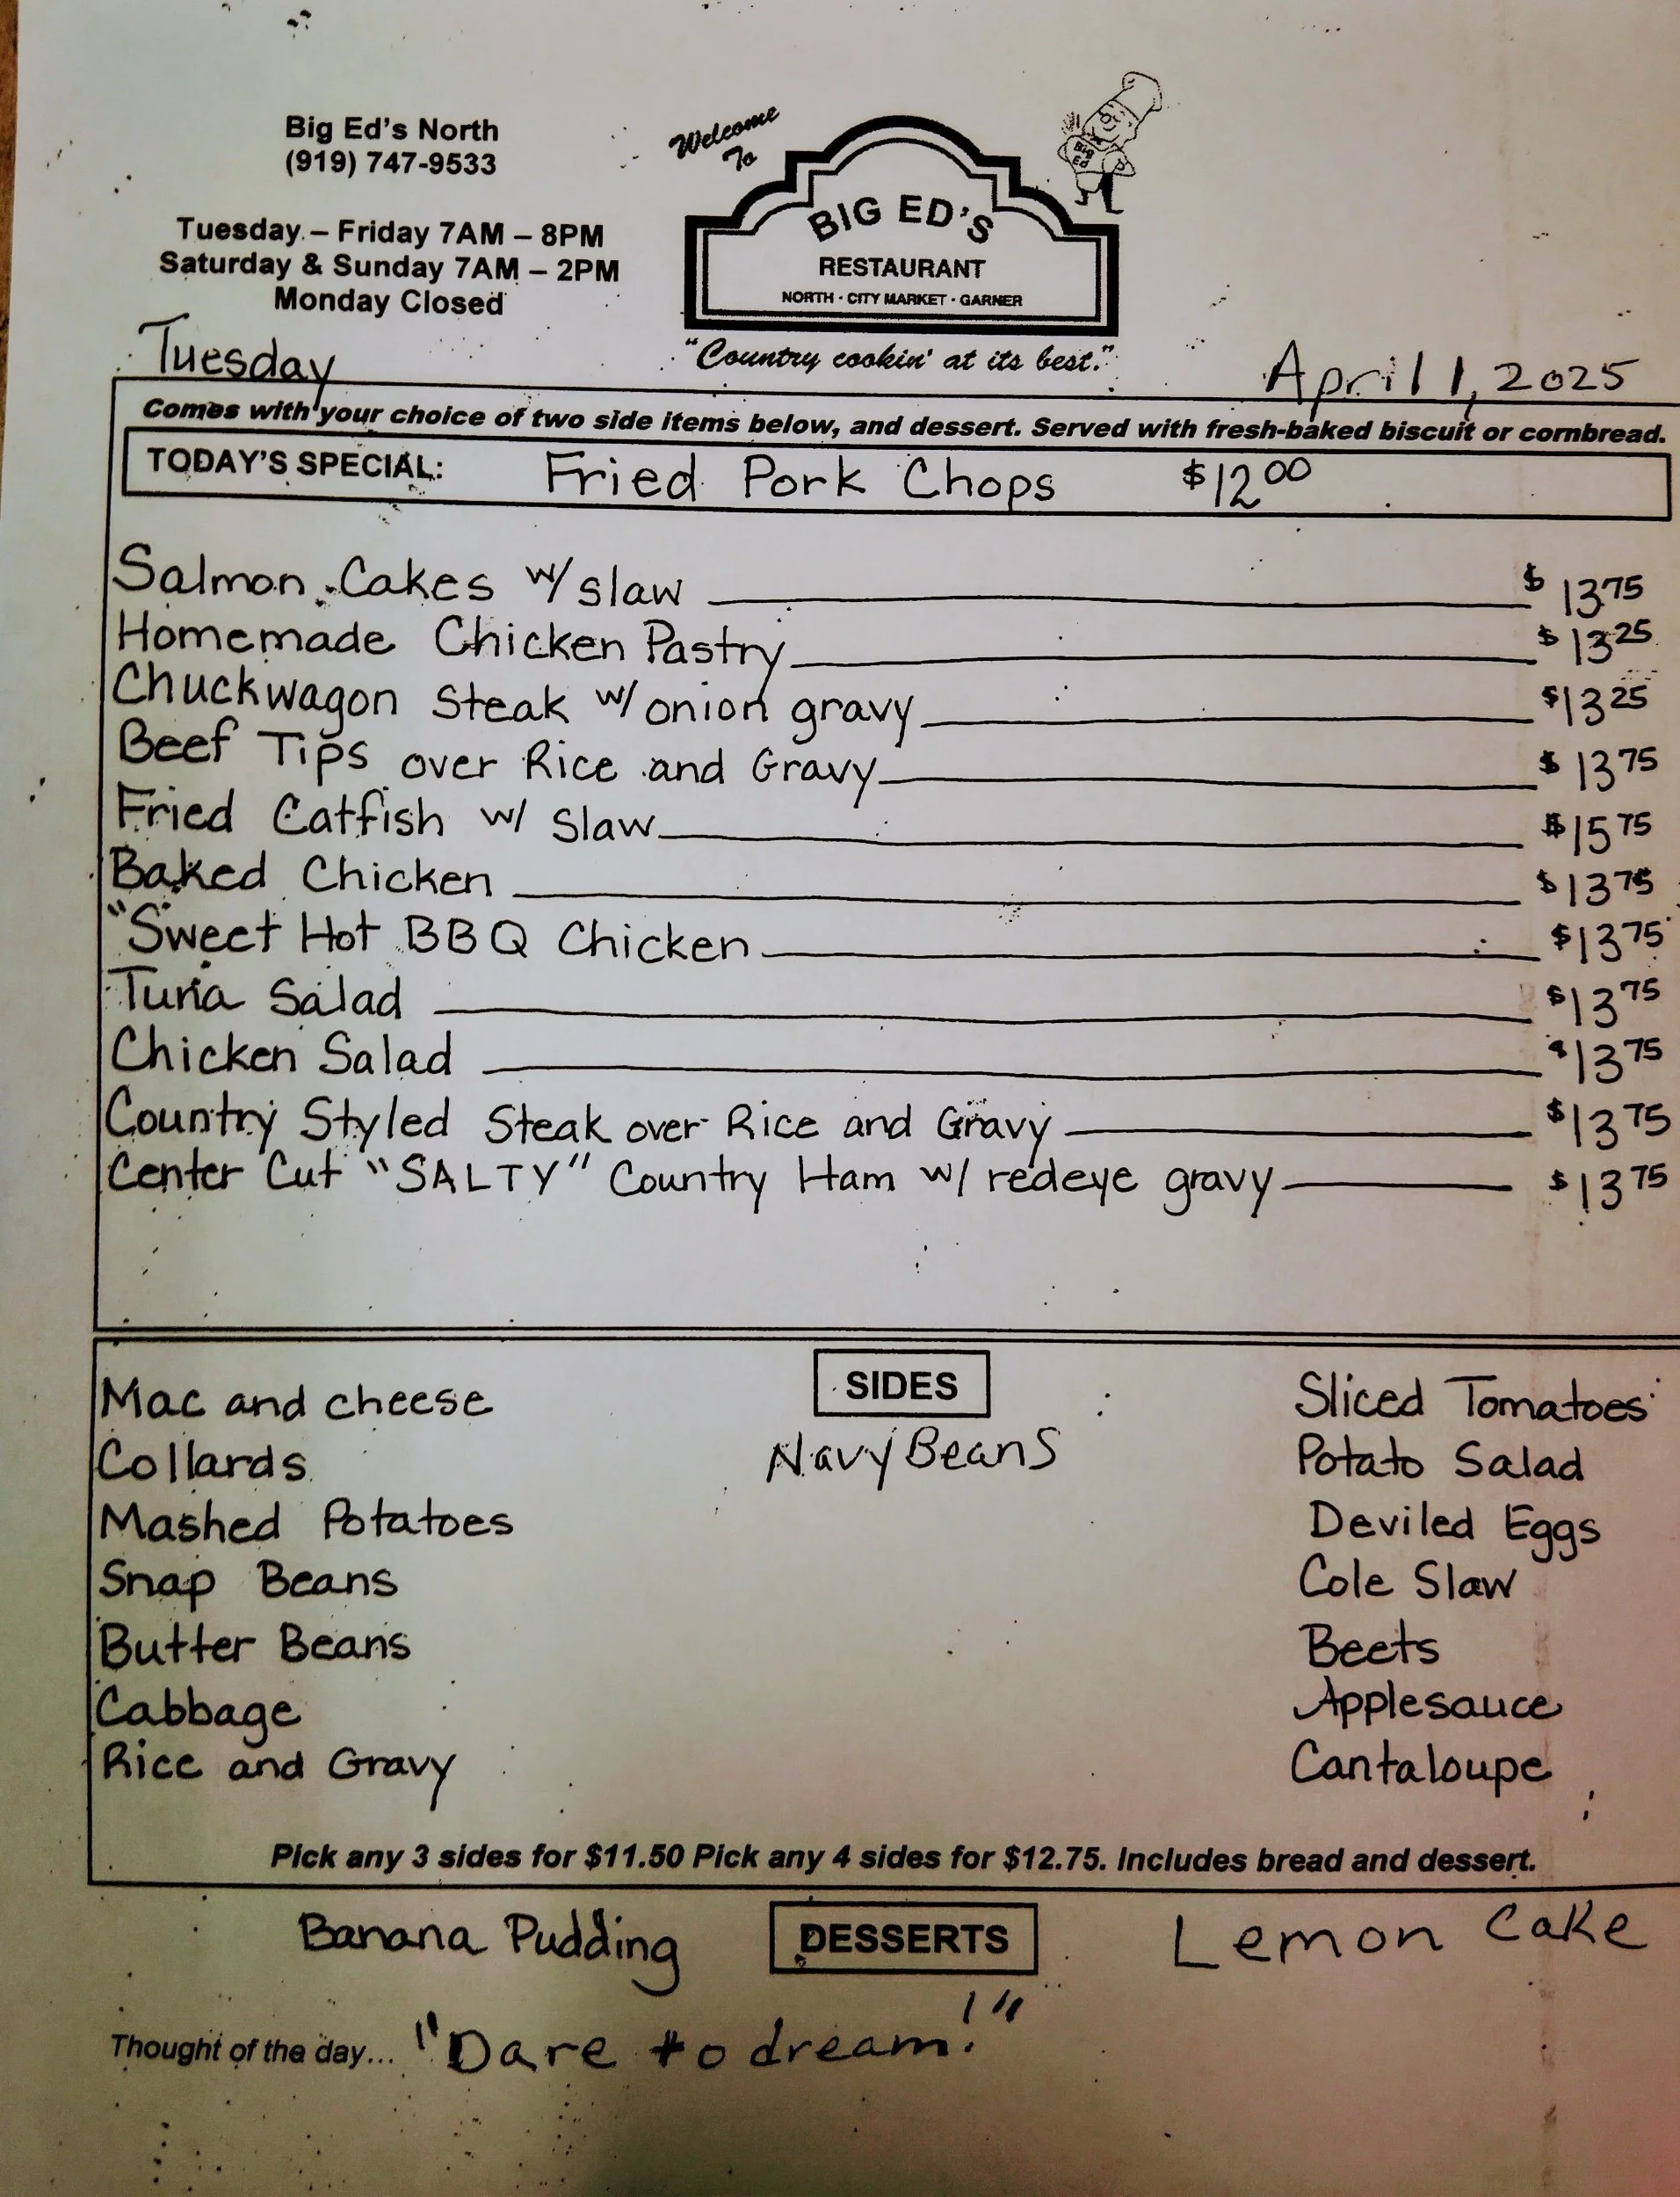 Big Ed's North
(919) 747-9533
Tuesday – Friday 7AM – 8PM
Saturday & Sunday 7AM – 2PM
Monday Closed
Welcome
To
BIG ED'S
RESTAURANT
NORTH · CITY MARKET · GARNER
Big
Ed
"Country cookin' at its best."
Tuesday
April 1, 2025
Comes with your choice of two side items below, and dessert. Served with fresh-baked biscuit or cornbread.
TODAY'S SPECIAL: Fried Pork Chops $12 00
Salmon Cakes w/ slaw $ 13 75
Homemade Chicken Pastry $ 13 25
Chuckwagon Steak w/ onion gravy $13 25
Beef Tips over Rice and Gravy $ 13 75
Fried Catfish w/ Slaw $15 75
Baked Chicken $13 75
"Sweet Hot BBQ Chicken $13 75
Tuna Salad $13 75
Chicken Salad $13 75
Country Styled Steak over Rice and Gravy $13 75
Center Cut "SALTY" Country Ham w/ redeye gravy $13 75
SIDES
Mac and cheese
Collards
Mashed Potatoes
Snap Beans
Butter Beans
Cabbage
Rice and Gravy
Navy Beans
Sliced Tomatoes
Potato Salad
Deviled Eggs
Cole Slaw
Beets
Applesauce
Cantaloupe
Pick any 3 sides for $11.50 Pick any 4 sides for $12.75. Includes bread and dessert.
Banana Pudding DESSERTS Lemon Cake
Thought of the day... "Dare to dream!"